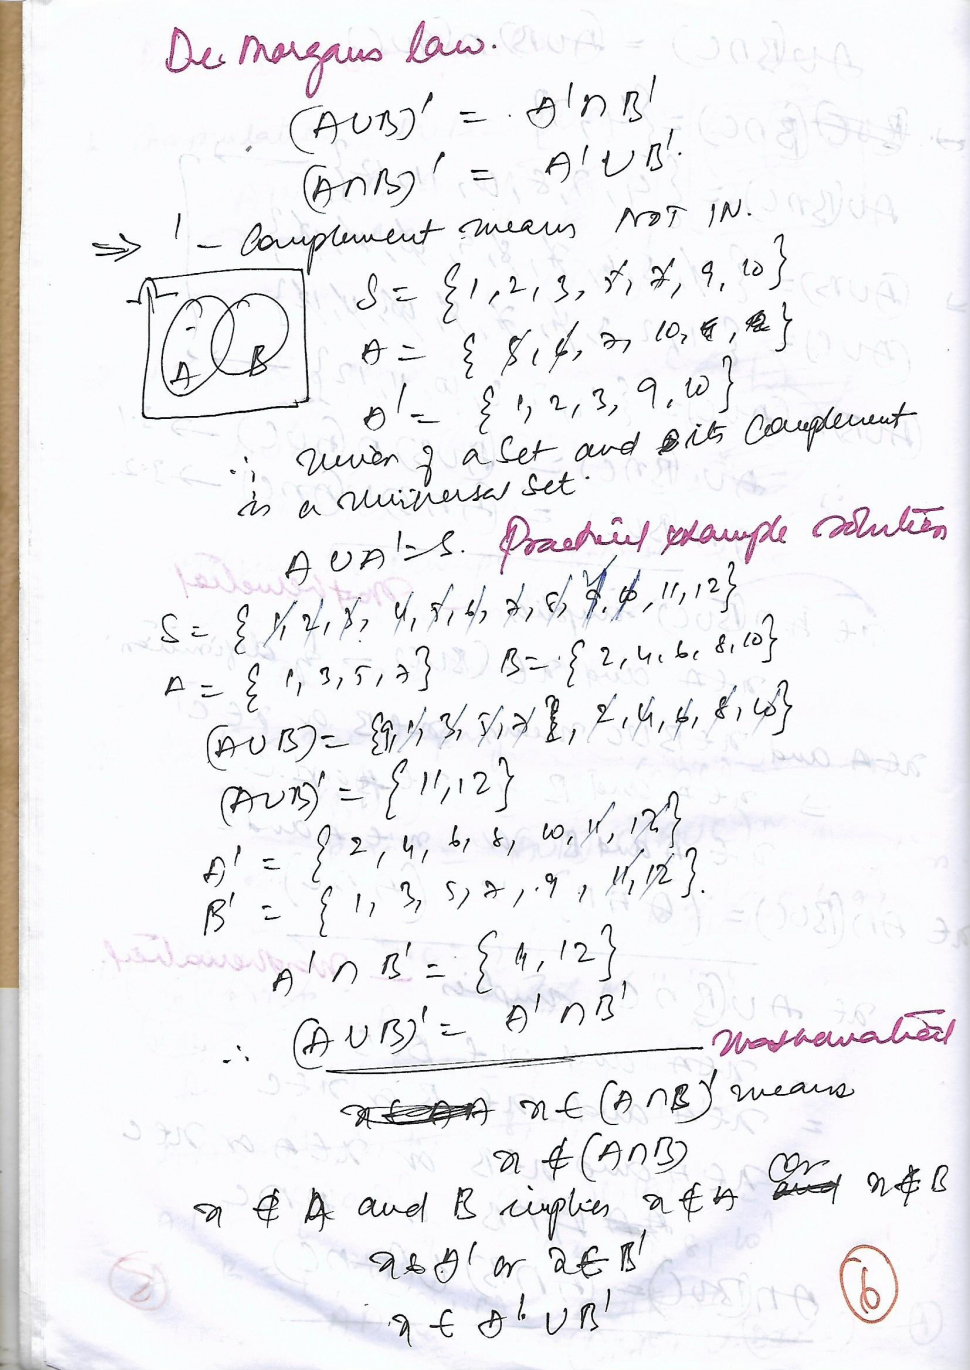 De Morgans law.
(A∪B)' = A'∩B'
(A∩B)' = A'∪B'.
⇒ ' – Complement means NOT IN.
S = {1, 2, 3, 5, 7, 9, 10}
A = {5, 6, 7, 10,
A B
A' = {1, 2, 3, 9, 10}
∴ Union of a set and its complement
is a universal set.
A∪A'=S. Practical example solution
S = {1, 2, 3, 4, 5, 6, 7, 8, 9, 10, 11, 12}
A = {1, 3, 5, 7} B = {2, 4, 6, 8, 10}
(A∪B) = {1, 3, 5, 7, 2, 4, 6, 8, 10}
(A∪B)' = {11, 12}
A' = {2, 4, 6, 8, 10, 11, 12}
B' = {1, 3, 5, 7, 9, 11, 12}.
A'∩B' = {11, 12}
∴ (A∪B)' = A'∩B'
Mathematical
x∈(A∩B)' means
x∉(A∩B)
x∉A and B implies x∉A or x∉B
x∈A' or x∈B'
x∈A'∪B'
6